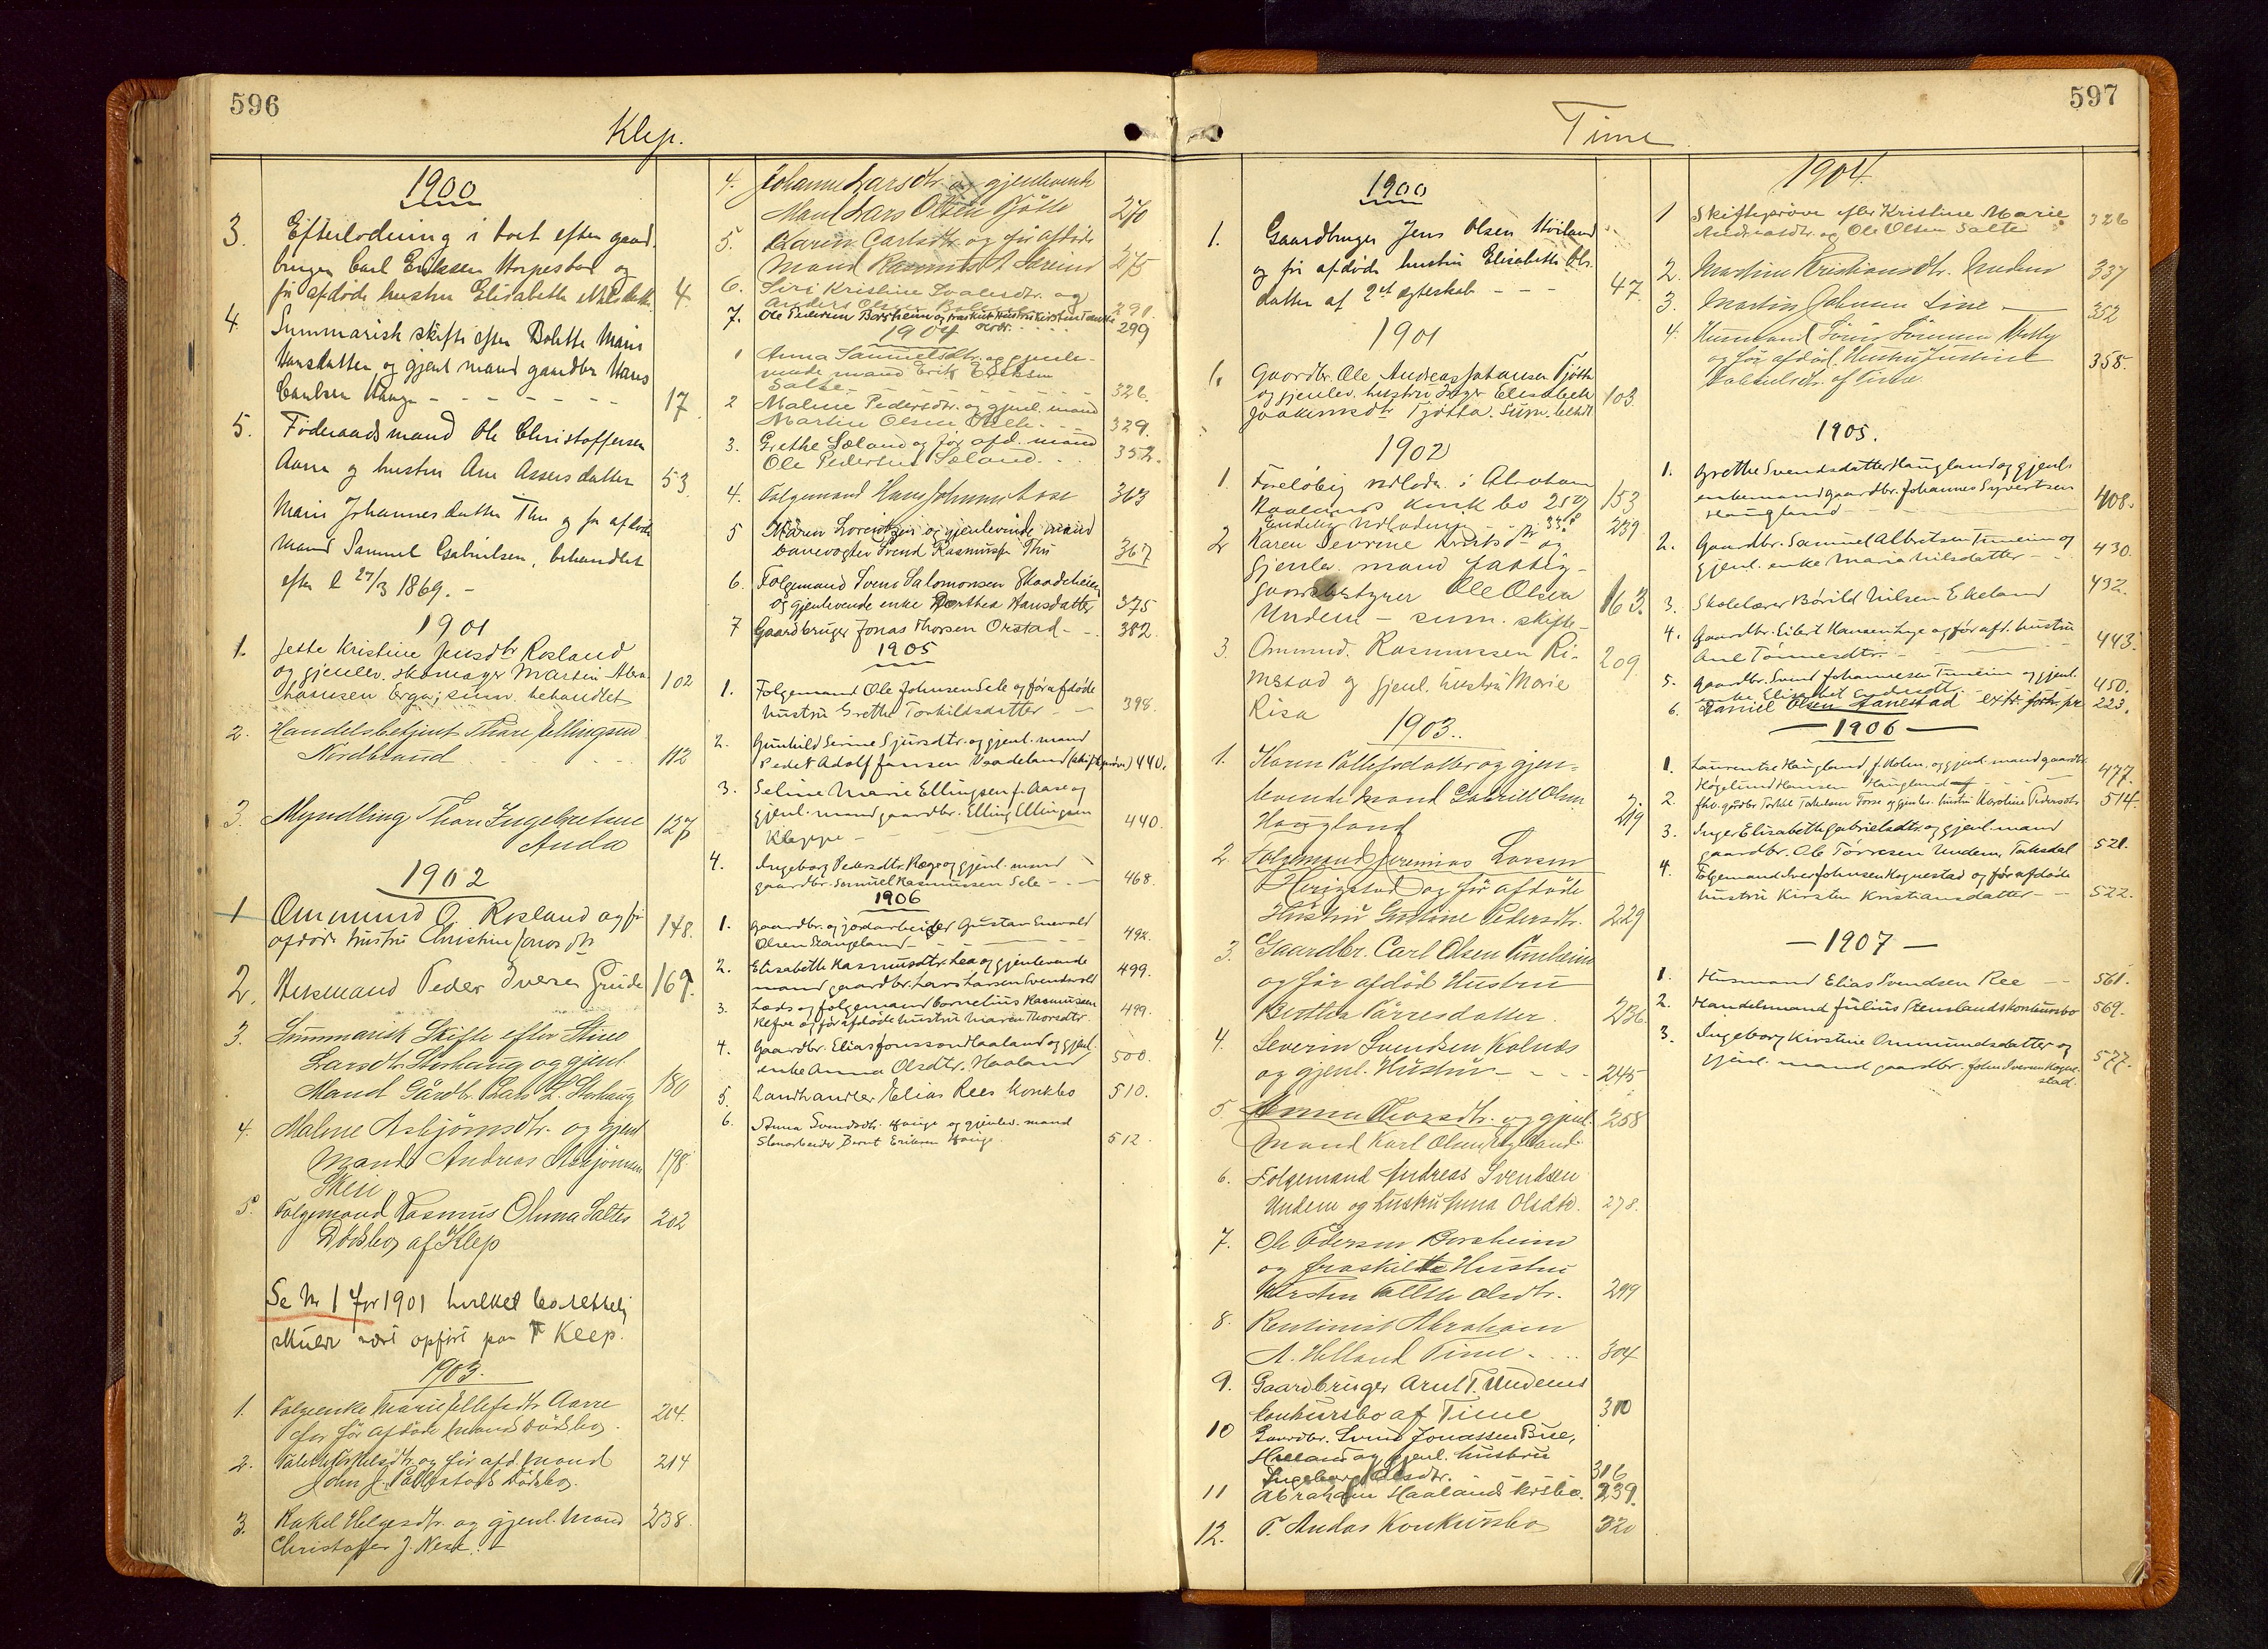 596
Klep.
1900
3. Efterlodning i boet efter gaard-
bruger Carl Eriksen Horpestad og
før afdøde hustru Elisabeth Nilsdatter 4.
4. Summarisk skifte efter Bolette Marie
Hansdatter og gjenl mand gaardbr Hans
Carlsen Hauge - - - - - 17.
5. Føderaadsmand Ole Christoffersen
Aarre og hustru Ane Assersdatter 53.
Maris Johannesdatter Thu og før afdøde
mand Samuel Gabrielsen, behandlet
efter l 27/3 1869. -
1901
1. Jette Kristine Jensdtr Rosland
og gjenlev. skomager Martin Abra
hamsen Erga; sum. behandlet 102
2. Handelsbetjent Thore Ellingsen
Nordbraud 112
3. Myndling Thore Ingebretsen
Anda 127
1902
1 Ommund O. Rosland og før
afdøde hustru Christine Jonasdtr 148.
2. Ukemand Peder Iversen Grude 169.
3. Summarisk Skifte efter Stine
Larsdtr. Storhaug og gjenl
Mand Gårdbr. Lars L. Storhaug 180
4. Malene Asbjørnsdtr. og gjenl
Mand Andreas Asbjørnsen 198.
Skeie
5. Folgemand Rasmus Olsena Saltes 202
Dødsbo af Klep
Se Nr 1 for 1901 hvilket bo rettelig
skulde vært opført paa Klep.
1903.
1. Folgeenke Marie Ellefsdtr Aarre
og før afdøde mands Dødsbo. 214.
2. og før afd. mand 214
John J. Pollestads Dødsbo.
3. Rakel Helgesdtr. og gjenl. Mand 238.
Christoffer J. Nese.
4. Johanne Larsdtr. og gjenlevende
Mand Lars Olsen Tjøtta 270
5. Karen Carlsdtr. og før afdøde
Mand Rasmus A Søreind 275
6. Siri Kristine Svalesdtr. og
Anders Olsen 291.
7. Ole Pedersen Borsheim og fraskilt hustru Kirsten Tomine
Olsdtr. 299
1904
1 Anna Samuelsdtr. og gjenle-
vende mand Erik Eriksen
Salte - - - - 326.
2 Malene Pedersdtr. og gjenl. mand
Martin Olsen 329.
3. Grethe Sæland og før afd. mand
Ole Pedersen Sæland 352.
4. Folgemand Hans Johnsen Aase 363
5 Maren Lorentzen og gjenlevende mand
banevogter Svend Rasmussen Thu 367
6. Folgemand Svend Salomonsen Skaadeheien
og gjenlevende enke Dorthea Hansdatter 375
7 Gaardbruger Jonas Thorsen Orstad - - 382.
1905
1. Folgemand Ole Johnsen Sele og før afdøde
hustru Grethe Torkildsdatter - - 398.
2. Gunhild Serine Sjursdtr. og gjenl. mand
Peder Adolf Jansen Vaadeland (skifteprøve) 440.
3. Seline Marie Ellingsen f. Aase og
gjenl. mand gaardbr. Elling Ellingsen
Kleppe - 440.
4. Ingeborg Pedersdtr. Rege og gjenl. mand
gaardbr. Samuel Rasmussen Sele - - - 468.
1906
1. Gaardbr. og jordarbeider Gustav Enevald
Olsen Stangeland - - 492.
2. Elisabeth Rasmusdtr. Lea og gjenlevende
mand gaardbr. Lars Larsen Svendsvold 499.
3. Lods og folgemand Cornelius Rasmussen
Refve og før afdøde hustru Maren Thorsdtr. 499.
4. Gaardbr. Elias Jonasson Haaland og gjenl.
enke Anna Olsdtr. Haaland 500.
5. Landhandler Elias Rees konkbo 510.
6. Anna Svendsdtr. Hauge og gjenlev. mand
Stenarbeider Bernt Eriksen Hauge. 512.
597
Time
1900
1. Gaardbruger Jens Olsen Høiland
og før afdøde hustru Elisabeth Ols-
datter af 2et ægteskab - - - 47.
1901
1. Gaardbr. Ole Andreas Johansen Tjøtta
og gjenlev. hustru Inger Elisabeth 103.
Joakimsdtr Tjøtta. Sum. behdl
1902
1. Foreløbig udlodn. i Abraham
Haalands konk bo 25% 153
Endelig Udlodning 33% 239
2 Karen Severine Knutsdtr og
gjenlev. mand fattig-
gaardsbestyrer Ole Olsen 163.
Undem - sum. skifte -
3. Ommund. Rasmussen Ri-
mestad og gjenl. hustru Marie 209
Risa
1903.
1. Karen Tollefsdatter og gjen-
levende Mand Gabriell Olsen
Haugland 219
2. Folgemand Jeremias Larsen
Herigstad og før afdøde
Hustru Gurine Pedersdtr. 229
3. Gaardbr. Carl Olsen Tunheim
og før afdød Hustru
Berthe Tørresdatter. 236.
4. Severin Svendsen Kalnæs
og gjenl. Hustru - - - 245
5. Anna Thorsdtr. og gjenl. 258
Mand Karl Olsen Rygeland.
6. Folgemand Andreas Svendsen
Undem og hustru Anna Olsdtr. 278.
7. Ole Pedersen Borsheim
og fraskilte Hustru
Kirsten Tomine Olsdtr. 299
8. Rentenist Abraham
A. Helland Time. 304
9. Gaardbruger Arnt T. Undems
konkursbo af Time 310
10 Gaardbr. Svend Jonassen Bue,
Helland og gjenl. hustru
Ingeborg Olsdtr. 316
11 Abraham Haalands krsbo. 239.
12. T. Andas Konkursbo 320
1904.
1 Skifteprøve efter Kristine Marie
Andreasdtr. og Ole Olsen Salte 326
2. Martine Kristiansdtr. Undem 337
3. Martin Johnsen Line - 352
4. Husmand Sørensen
og før afdød Hustru Justine 358.
af Time
1905.
1. Grethe Svendsdatter Haugland og gjenl.
enkemand gaardbr. Johannes Syvertsen
Haugland 408.
2. Gaardbr. Samuel Albertsen Tuneim og
gjenl. enke Maria Nilsdatter - - 430.
3. Skolelærer Børild Nilsen Ekeland 432.
4. Gaardbr. Eilert Hansen Lye og før afd. hustru
Ane Tønnesdtr. - - 443.
5. Gaardbr. Svend Johannesen Tuneim og gjenl.
enke Elisabet 450.
6. Daniel Olsen Hanestad - extr. forh. pr 223.
- 1906 -
1. Laurentse Haugland f. Holm og gjenl. mand gaardbr
Høgelund Hansen Haugland 477.
2. fhv. gårdbr Torkel Torkelsen Fosse og gjenlev. hustru Karoline Pedersdtr 514.
3. Inger Elisabeth Gabrielsdtr. og gjenl. mand
gaardbr. Ole Tørresen Undem, Taksdal 521.
4. Folgemand Iver Johnsen Hognestad og før afdøde
hustru Kirsten Kristiansdatter - - 522.
- 1907 -
1. Husmand Elias Svendsen Ree - - 561.
2. Handelsmand Julius Stenslands konkursbo 569.
3. Ingeborg Kirstine Ommundsdatter og
gjenl. mand gaardbr. John Iversen Hogne-
stad. 577.